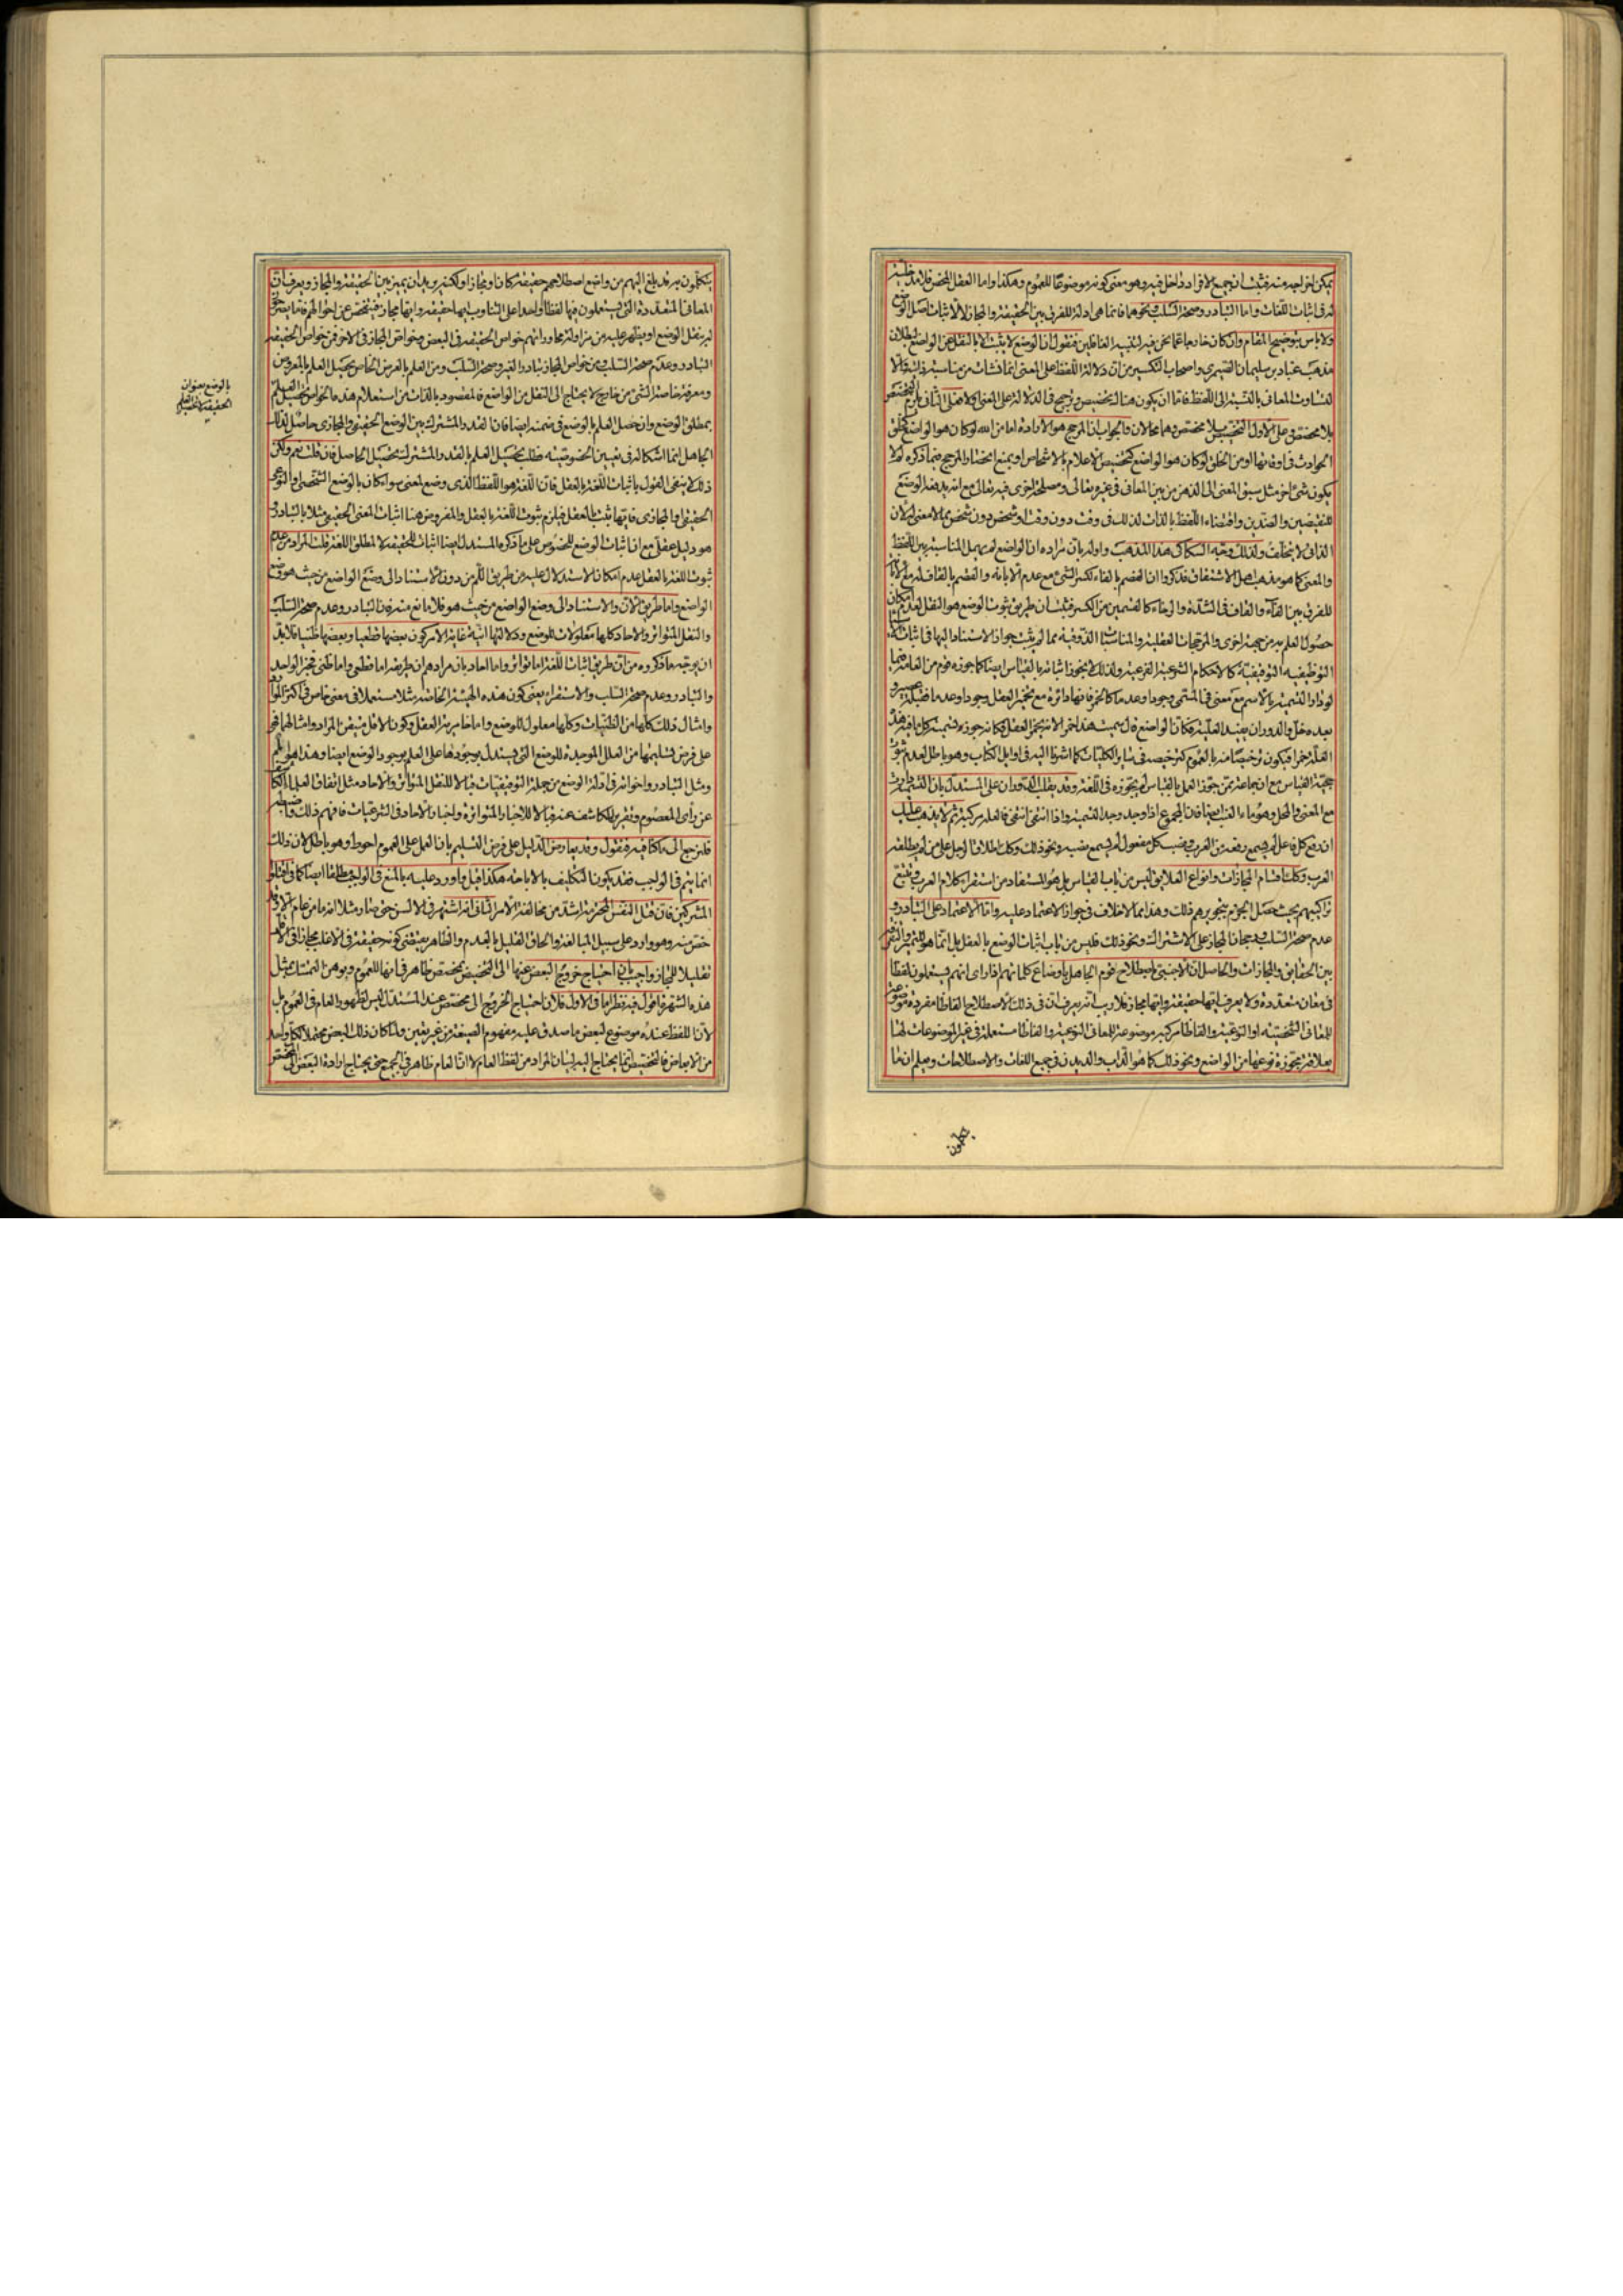 يمكن اخراجه منه فثبت ان جميع الافراد داخل فيه وهو معنى كونه موضوعا للعموم وهكذا واما العقل المحض فلا مدخلية
له فى اثبات اللغات واما التبادر وصحة السلب ونحوهما فانما هى ادلة للفرق بين الحقيقة والمجاز لا لاثبات اصل الوضع
ولا باس بتوضيح المقام وان كان خارجا عما نحن فيه لتنبيه الغافلين فنقول ان الوضع لا يثبت الا بالنقل عن الواضع لبطلان
مذهب عباد بن سليمان الصيمرى واصحاب التكسير من ان دلالة اللفظ على المعنى انما نشات من مناسبة ذاتية والا
لتساوت المعانى بالنسبة الى اللفظ فاما ان يكون هناك تخصيص وترجيح فى الدلالة على المعنى ام لا فعلى الثانى يلزم التخصيص
بلا مخصص وعلى الاول التخصيص بلا مخصص وهما محالان والجواب ان المرجح هو الارادة اما من الله لو كان هو الواضع كخلق
الحوادث فى اوقاتها او من الخلق لو كان هو الواضع كتخصيص الاعلام بالاشخاص او بمنع انحصار المرجح فيما ذكره لم لا
يكون شئ اخر مثل سبق المعنى الى الذهن من بين المعانى فى غيره تعالى ومصلحة اخرى فيه تعالى مع انه يدفعه الوضع
للنقيضين والضدين واقتضاء اللفظ بالذات لذلك فى وقت دون وقت او شخص دون شخص مما لا معنى له لان
الذاتى لا يتخلف ولذلك وجه السكاكى هذا المذهب واوله بان مراده ان الواضع لم يهمل المناسبة بين اللفظ
والمعنى كما هو مذهب اهل الاشتقاق فذكروا ان الفصم بالفاء لكسر الشئ مع عدم الابانة والقصم بالقاف له مع الابانة
للفرق بين الفاء والقاف فى الشدة والرخاء كالقسمين من الكسر فثبت ان طريق ثبوت الوضع هو النقل لعدم امكان
حصول العلم به من جهة اخرى والمرجحات العقلية والمناسبات الذوقية مما لم يثبت جواز الاستناد اليها فى اثبات
التوظيفية التوقيفية كالاحكام الشرعية الفرعية ولذلك لا يجوز اثباته بالقياس ايضا كما جوزه قوم من العامة فيما
لو دار التسمية بالاسم مع معنى فى المسمى وجودا وعدما كالخمر فانها دائرة مع تخمير العقل وجودا وعدما
مع المعنى والمحل وهو ماء العنب ايضا فان المجموع اذا وجد وجد التسمية واذا انتفى انتفى فالعلة مركبة ثم لا يذهب عليك
ان رفع كل فاعل لم يسمع رفعه من العرب ونصب كل مفعول لم يسمع نصبه ونحو ذلك وكك اطلاق الرجل على من لم يطلقه
العرب وكك اقسام المجازات وانواع العلايق ليس من باب القياس بل هو المستفاد من استقراء كلام العرب وتتبع
تراكيبهم بحيث حصل الجزم بتجويزهم ذلك وهذا مما لا خلاف فى جواز الاعتماد عليه واما الاعتماد على التبادر و
عدم صحة السلب ورجحان المجاز على الاشتراك ونحو ذلك فليس من باب اثبات الوضع بالعقل بل انما هو للتميز والتفرقة
بين الحقايق والمجازات والحاصل ان الاجنبى باصطلاح قوم الجاهل باوضاع كلماتهم اذا راى انهم يستعملون لفظا
فى معان متعددة ولا يعرف ايها حقيقة وايها مجاز فلا ريب انه يعرف ان فى ذلك الاصطلاح الفاظا مفردة موضوعة
للمعانى الشخصية او النوعية والفاظا مركبة موضوعة للمعانى النوعية والفاظا مستعملة فى غير الموضوعات لها
بعلاقة مجوزة نوعها من الواضع ونحو ذلك كما هو الداب والديدن فى جميع اللغات والاصطلاحات ويعلم ان ما
يتكلمون
يتكلمون به قد بلغ اليهم من واضع اصطلاحهم حقيقة كان او مجازا ولكنه يريد ان يميز بين الحقيقة والمجاز ويعرف ان
المعانى المتعددة التى يستعملون فيها لفظا واحدا على التناوب ايها حقيقة وايها مجاز فيتفحص عن احوالهم فاما يصرح
له بنقل الوضع او يظهر عليه من مزاولة محاوراتهم خواص الحقيقة فى البعض وخواص المجاز فى الاخر فمن خواص الحقيقة
التبادر وعدم صحة السلب ومن خواص المجاز تبادر الغير وصحة السلب ومن العلم بالعرض الخاص يحصل العلم بالمعروض
ومعرفة خاصة الشئ من خارج لا يحتاج الى النقل من الواضع فالمقصود بالذات من استعلام هذه الخواص تحصيل العلم
بالوضع بعنوان
الحقيقة لا تحصيل العلم
بمطلق الوضع وان حصل العلم بالوضع فى ضمنه ايضا فان القدر المشترك بين الوضع الحقيقى والمجازى حاصل لذلك
الجاهل انما اشكاله فى تعيين الخصوصية فطلب تحصيل العلم بالقدر المشترك تحصيل الحاصل فان قلت نعم ولكن
ذلك لا ينفى القول باثبات اللغة بالعقل فان اللغة هو اللفظ الذى وضع لمعنى سواء كان بالوضع الشخصى او النوعى
الحقيقى او المجازى فايها ثبت بالعقل فيلزم ثبوت اللغة بالعقل والمفروض هنا اثبات المعنى الحقيقى مثلا بالتبادر و
هو دليل عقلى مع ان اثبات الوضع للخصوص على ما ذكره المستدل ايضا اثبات للحقيقة لا لمطلق اللغة قلت المراد من عدم
ثبوت اللغة بالعقل عدم امكان الاستدلال عليه من طريق اللم من دون الاستناد الى وضع الواضع من حيث هو وضع
الواضع واما طريق الان والاستناد الى وضع الواضع من حيث هو فلا مانع منه فان التبادر وعدم صحة السلب
والنقل المتواتر والاحاد كلها معلولات للوضع ودلالتها انية غاية الامر كون بعضها قطعيا وبعضها ظنيا فلا بد
ان يوجه ما ذكروه من ان طريق اثبات اللغة اما تواتر واما احاد بان مرادهم ان طريقه اما قطعى واما ظنى فخبر الواحد
والتبادر وعدم صحة السلب والاستقراء بمعنى كون هذه الهيئة الخاصة مثلا مستعملا فى معنى خاص فى اكثر الموارد
وامثال ذلك كلها من الظنيات وكلها معلول للوضع واما خاصية العقل وكون الاقل متيقن المراد وامثالهما فهى
على فرض تسليمها من العلل الموجدة للوضع التى يستدل بوجودها على العلم بوجود الوضع ايضا وهذا هو
ومثل التبادر واخواته فى ادلة الوضع من جملة التوقيفيات قبالا للنقل المتواتر والاحاد مثل اتفاق العلماء الكاشف
عن راى المعصوم وتقريره الكاشف عنه قبالا للاخبار المتواترة واخبار الاحاد فى الشرعيات فافهم ذلك واضبطه
فلنرجع الى ما كنا فيه فنقول وقد يعارض الدليل على فرض التسليم بان الحمل على العموم احوط وهو باطل لان ذلك
انما يتم فى الواجب فقد يكون التكليف بالاباحة هكذا قيل واورد عليه بالمنع فى الواجب مطلقا ايضا كما فى اقتلوا
المشركين فان قتل النفس المحرمة اشد من مخالفة الامر الثانى انه اشتهر فى الالسن حتى صار مثلا انه ما من عام الا وقد
خص منه وهو وارد على سبيل المبالغة والحاق القليل بالعدم والظاهر يقتضى كونه حقيقة فى الاغلب مجازا فى الاقل
تقليلا للمجاز واجيب بان احتياج خروج البعض عنها الى التخصيص بمخصص ظاهر فى انها للعموم ويوهن التمسك بمثل
هذه الشهرة اقول فيه نظر اما فى الاول فلان احتياج الخروج الى مخصص عند المستدل ليس لظهور العام فى العموم بل
لان اللفظ عنده موضوع لبعض ما صدق عليه مفهوم الصيغة من غير تعيين ولما كان ذلك البعض محتملا لكل واحد
من الابعاض فالتخصيص انما يحتاج اليه لبيان المراد من لفظ العام لا ان العام ظاهر فى الجميع حتى يحتاج ارادة البعض الى المخصص